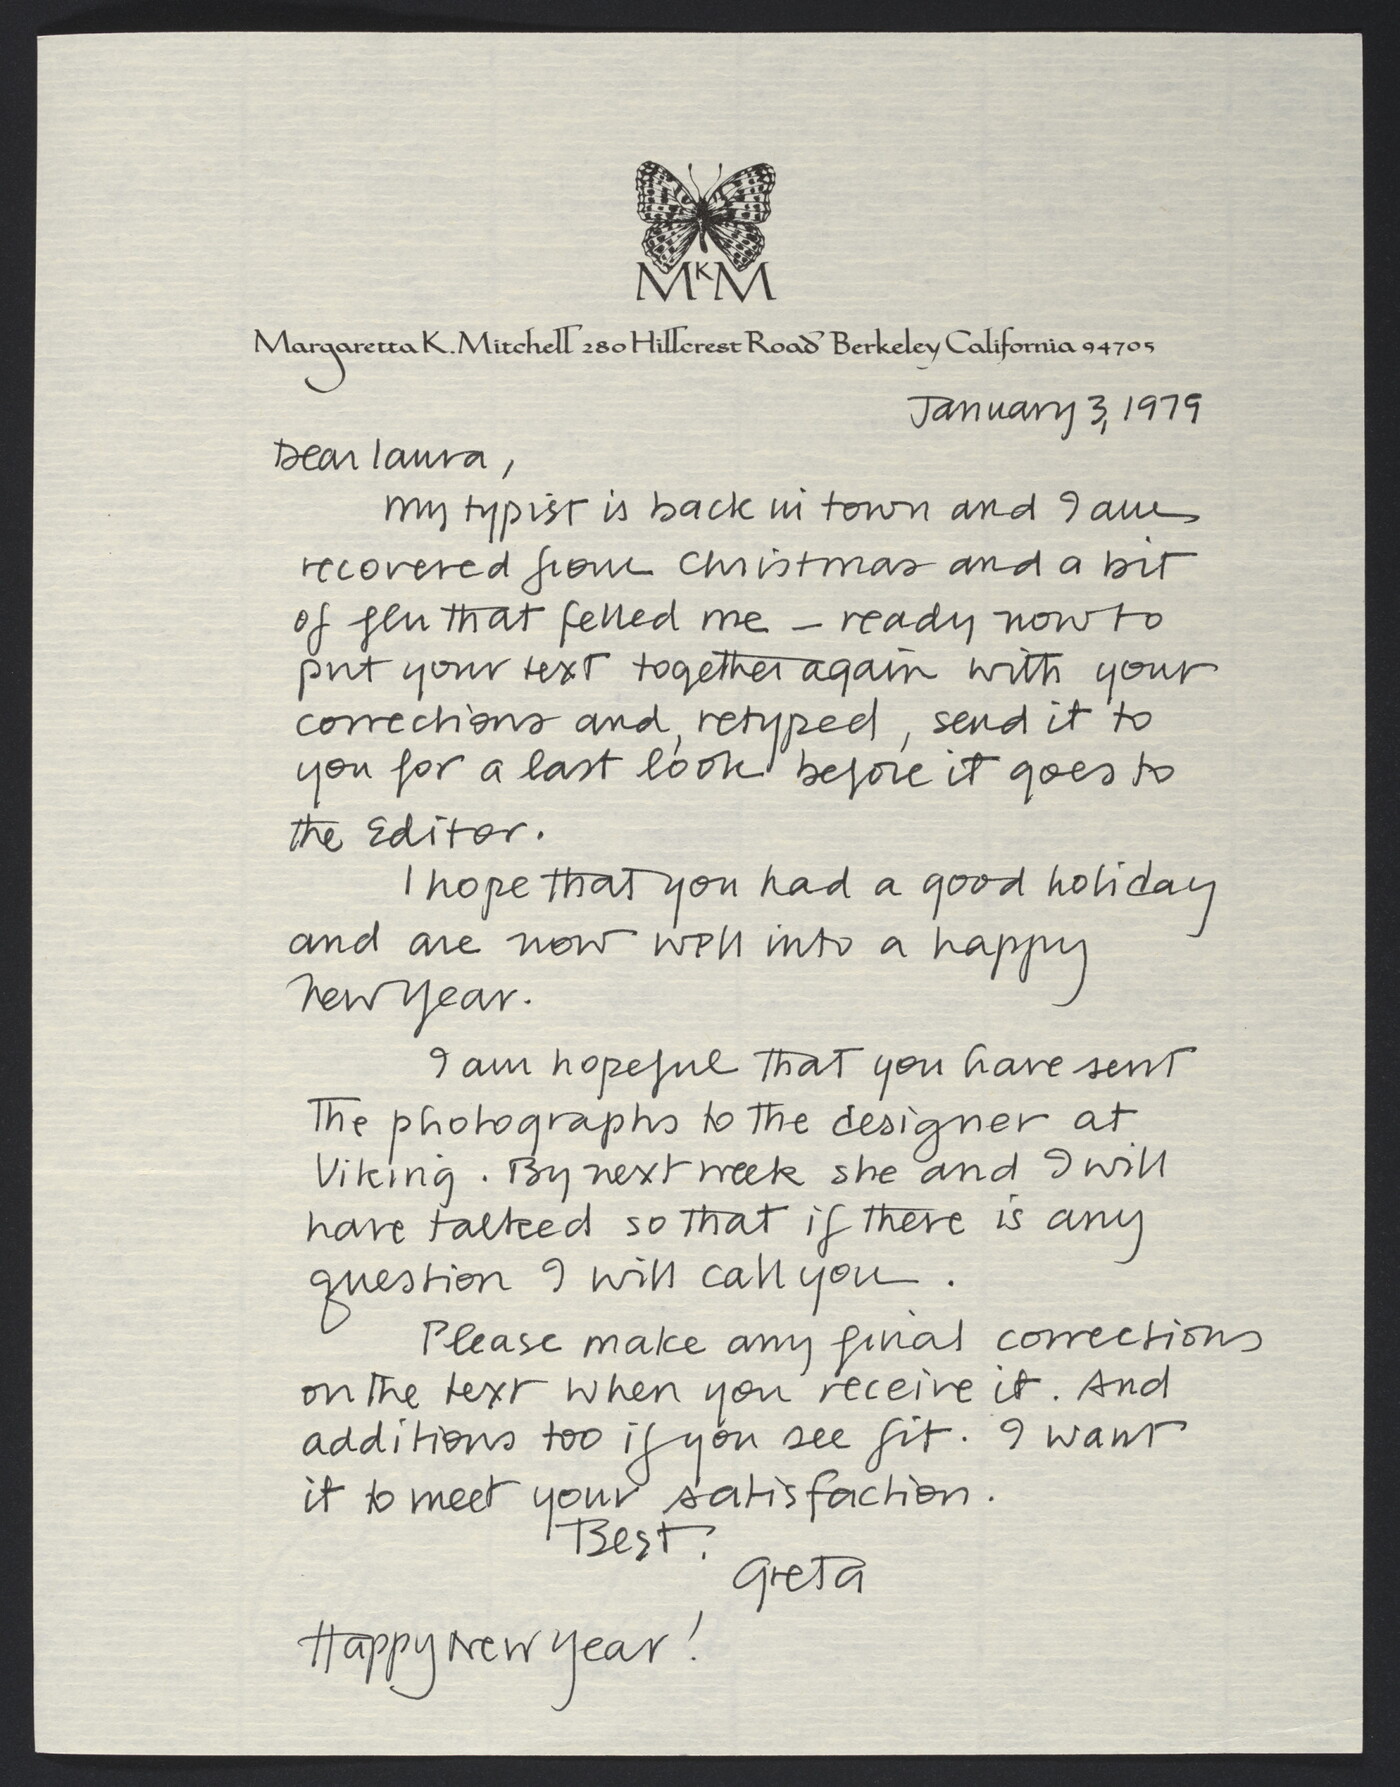 MKM
Margaretta K. Mitchell 280 Hillcrest Road Berkeley California 94705
January 3, 1979
Dear Laura,
My typist is back in town and I am
recovered from Christmas and a bit
of flu that felled me – ready now to
put your text together again with your
corrections and, retyped, send it to
you for a last look before it goes to
the Editor.
I hope that you had a good holiday
and are now well into a happy
New Year.
I am hopeful that you have sent
the photographs to the designer at
Viking. By next week she and I will
have talked so that if there is any
question I will call you.
Please make any final corrections
on the text when you receive it. And
additions too if you see fit. I want
it to meet your satisfaction.
Best,
Greta
Happy New Year!